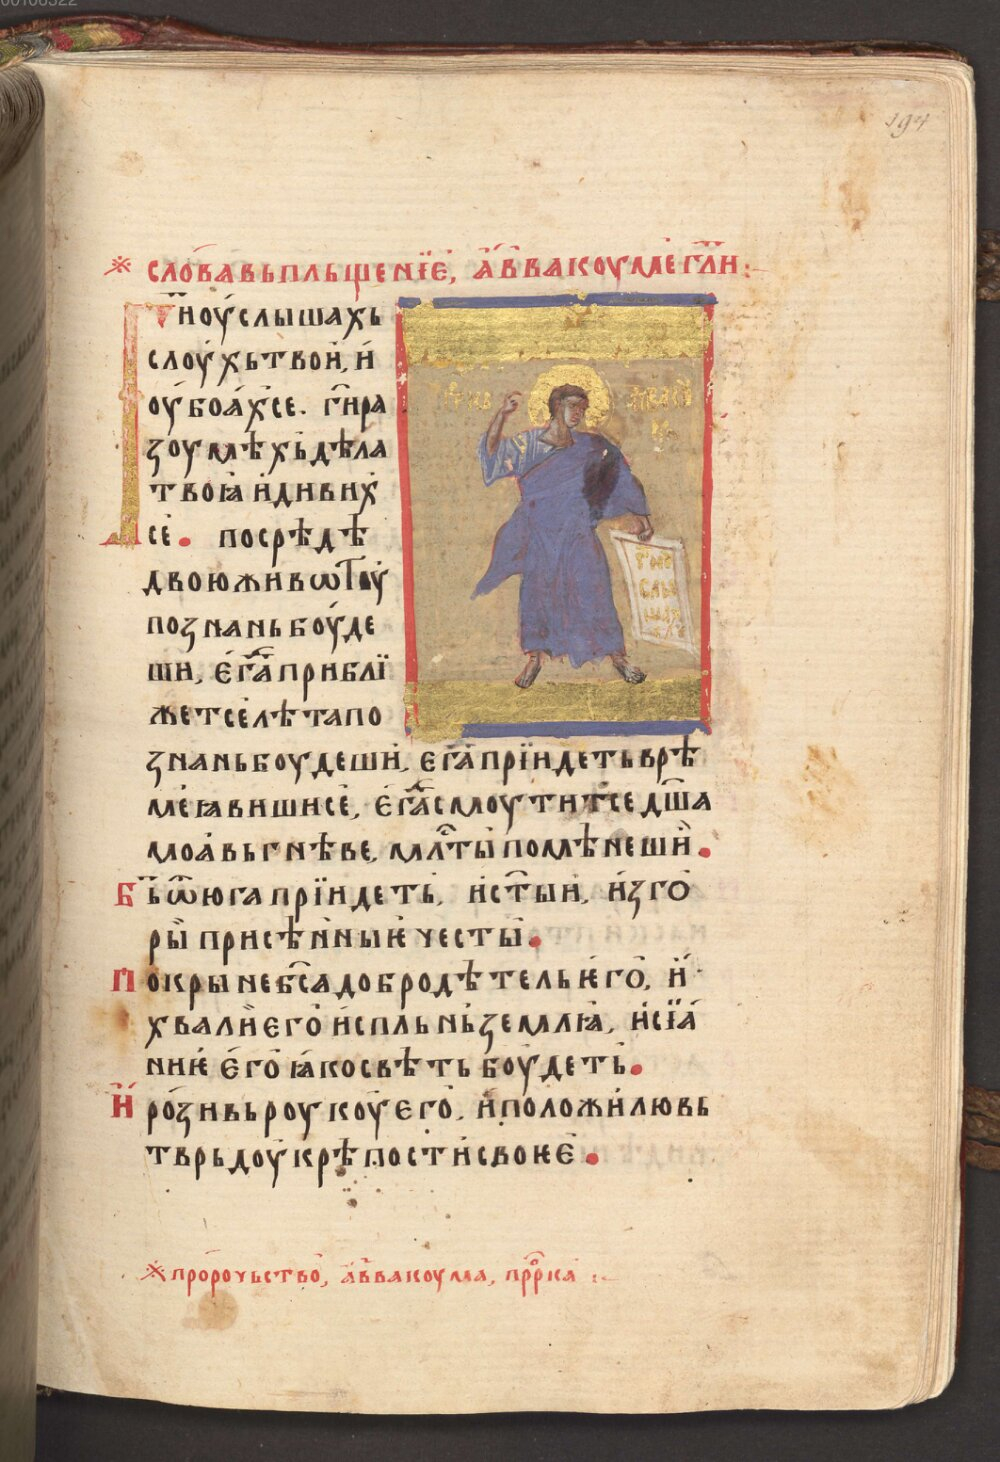 00106322
194
※ слова вьпльщенїе, аввакоумле гл҃ни :~
Г҃и оуслышахь
слоухь твои, и
оубоах се. г҃и ра
зоумѣхь дѣла
твоꙗ и дивих
се • посрѣдѣ
двою живѡтоу
познань боуде
ши, ег҃да приблї
жет се лѣта по
знань боудеши, ег҃да прїидеть врѣ
ме ꙗвиши се, ег҃да смоутит се дш҃а
моа вь гнѣве, млс҃ты помѣнеши •
Бь ѿ юга прїидеть, и ст҃ыи, из го
ры присѣнныѥ честы •
Покры нб҃са добродѣтель ѥго, и
хвалы его испльнь землꙗ, и сїа
ниѥ его ꙗко свѣть боудеть •
И рози вь роукоу его, и положи любь
тврьдоу крѣпости своѥе •
г҃и оу
слы
шах
※ пророчьство, аввакоума, прр҃ка :~